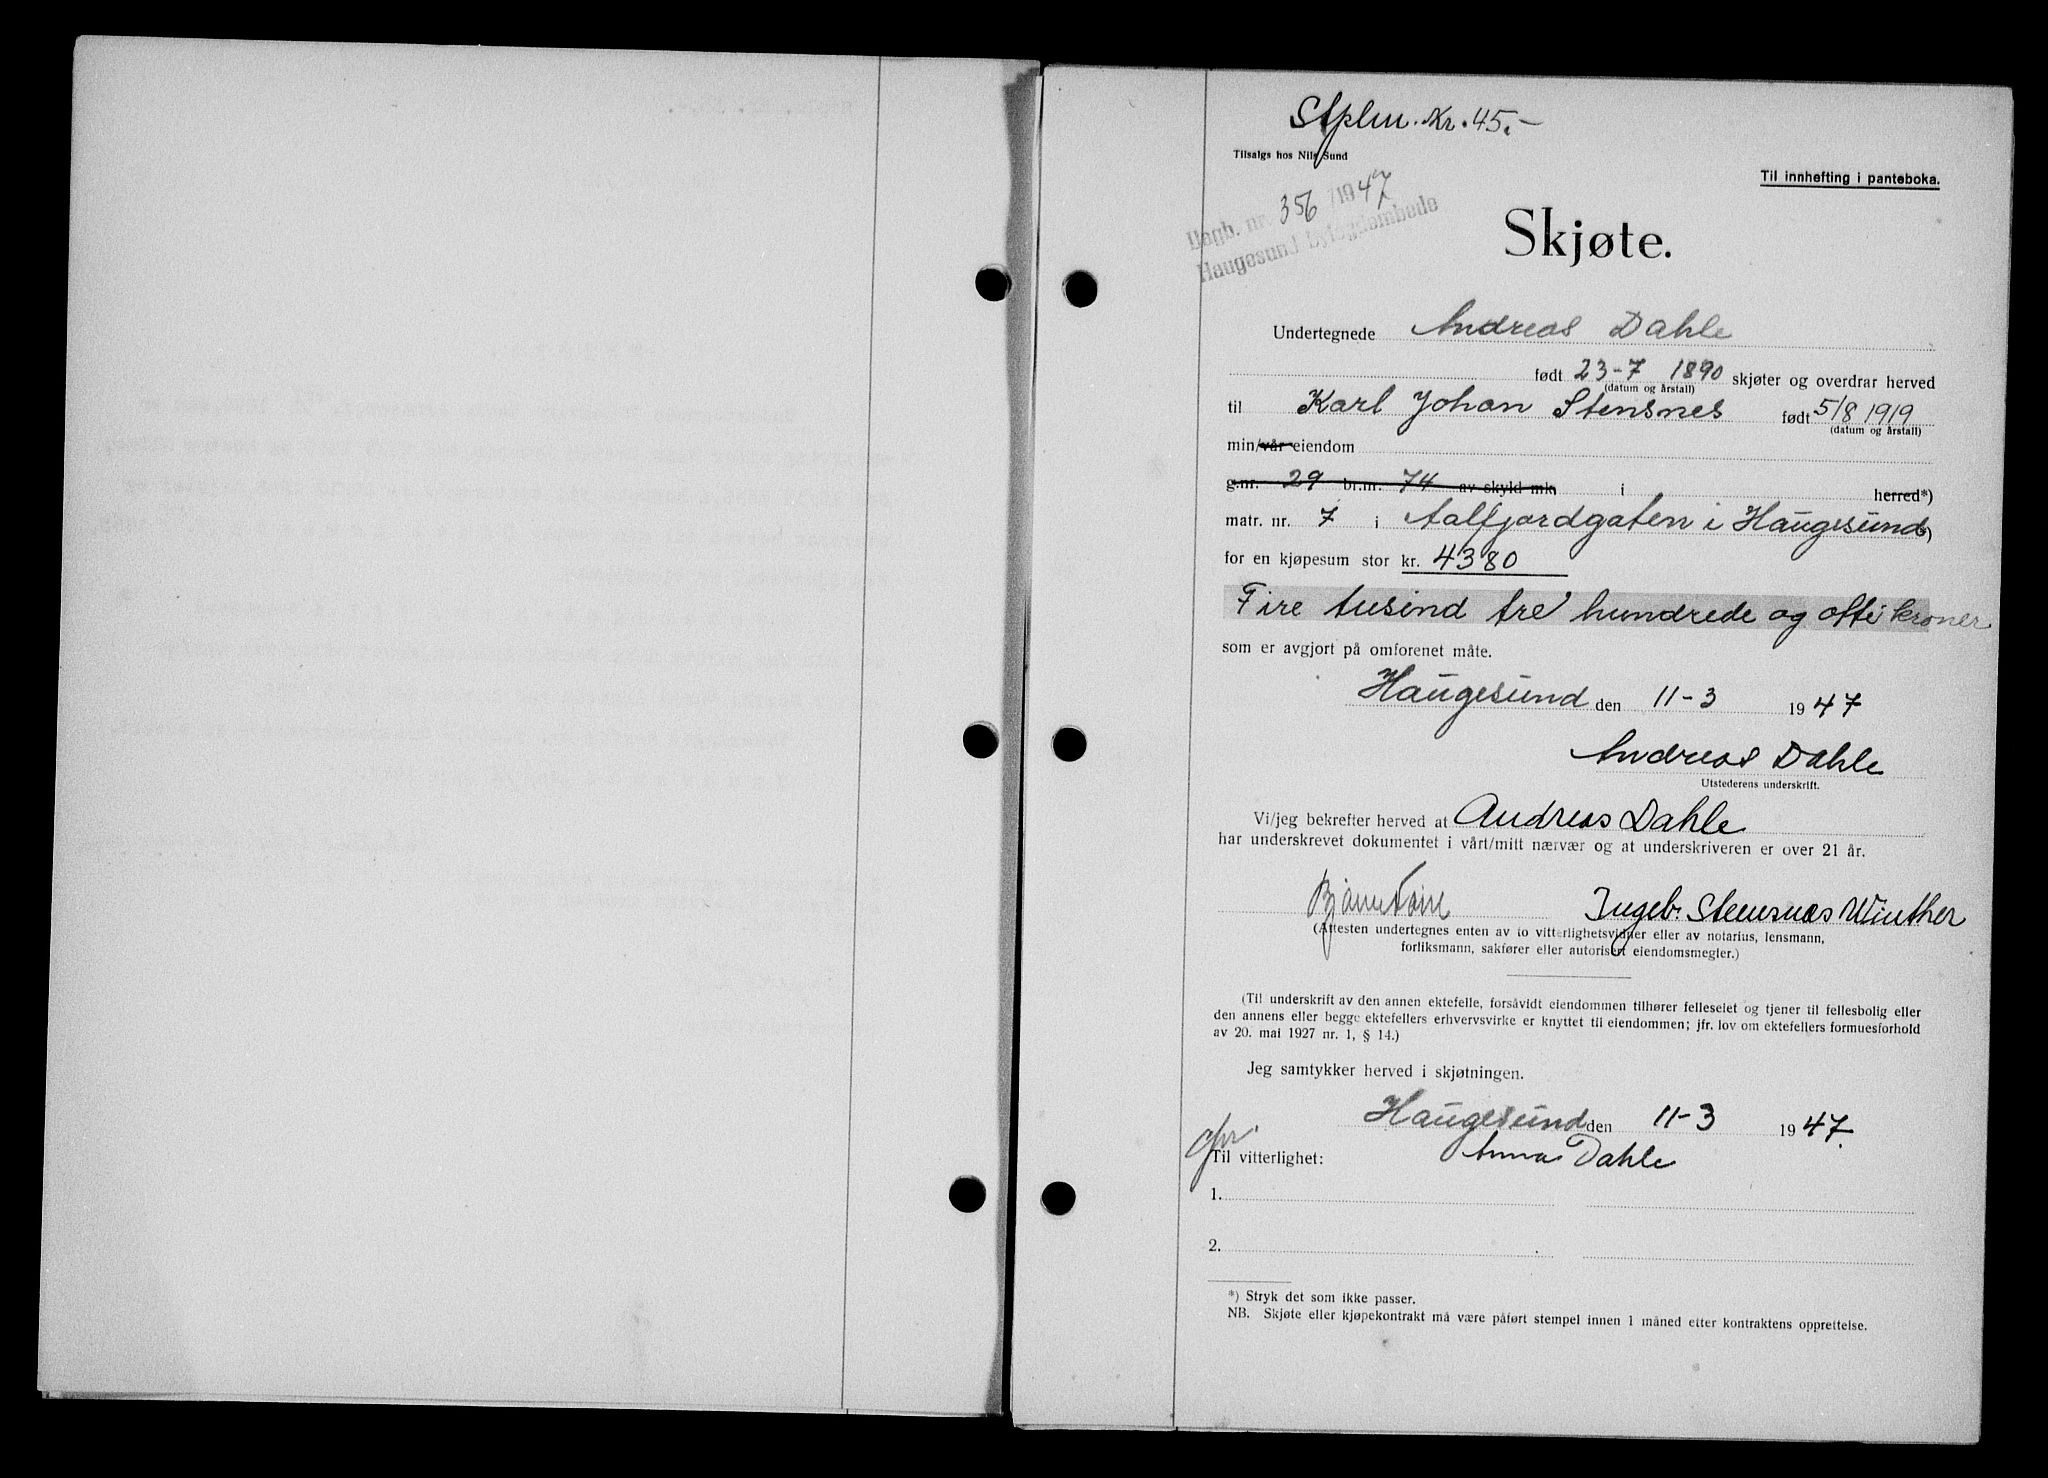 Stplm. Kr. 45.-
Tilsalgs hos Nils Sund
Til innhefting i panteboka.
Dagb. nr. 356 /1947
Haugesund byfogdembede
Skjøte.
Undertegnede Andreas Dahle
født 23-7 1890 skjøter og overdrar herved
(datum og årstall)
til Karl Johan Stensnes født 5/8 1919
(datum og årstall)
min/vår eiendom
g.nr. 29 br.nr. 74 av skyld mk. i herred*)
matr. nr. 7 i Aalfjordgaten i Haugesund*)
for en kjøpesum stor kr. 4380
Fire tusind tre hundrede og otti kroner
som er avgjort på omforenet måte.
Haugesund den 11-3 1947
Andreas Dahle
Utstederens underskrift.
Vi/jeg bekrefter herved at Andreas Dahle
har underskrevet dokumentet i vårt/mitt nærvær og at underskriveren er over 21 år.
Ingebr. Stensnæs Winther
(Attesten undertegnes enten av to vitterlighetsvidner eller av notarius, lensmann,
forliksmann, sakfører eller autorisert eiendomsmegler.)
(Til underskrift av den annen ektefelle, forsåvidt eiendommen tilhører felleseiet og tjener til fellesbolig eller
den annens eller begge ektefellers erhvervsvirke er knyttet til eiendommen; jfr. lov om ektefellers formuesforhold
av 20. mai 1927 nr. 1, § 14.)
Jeg samtykker herved i skjøtningen.
Haugesund den 11-3 1947.
Til vitterlighet: Anna Dahle
1.
2.
*) Stryk det som ikke passer.
NB. Skjøte eller kjøpekontrakt må være påført stempel innen 1 måned etter kontraktens opprettelse.